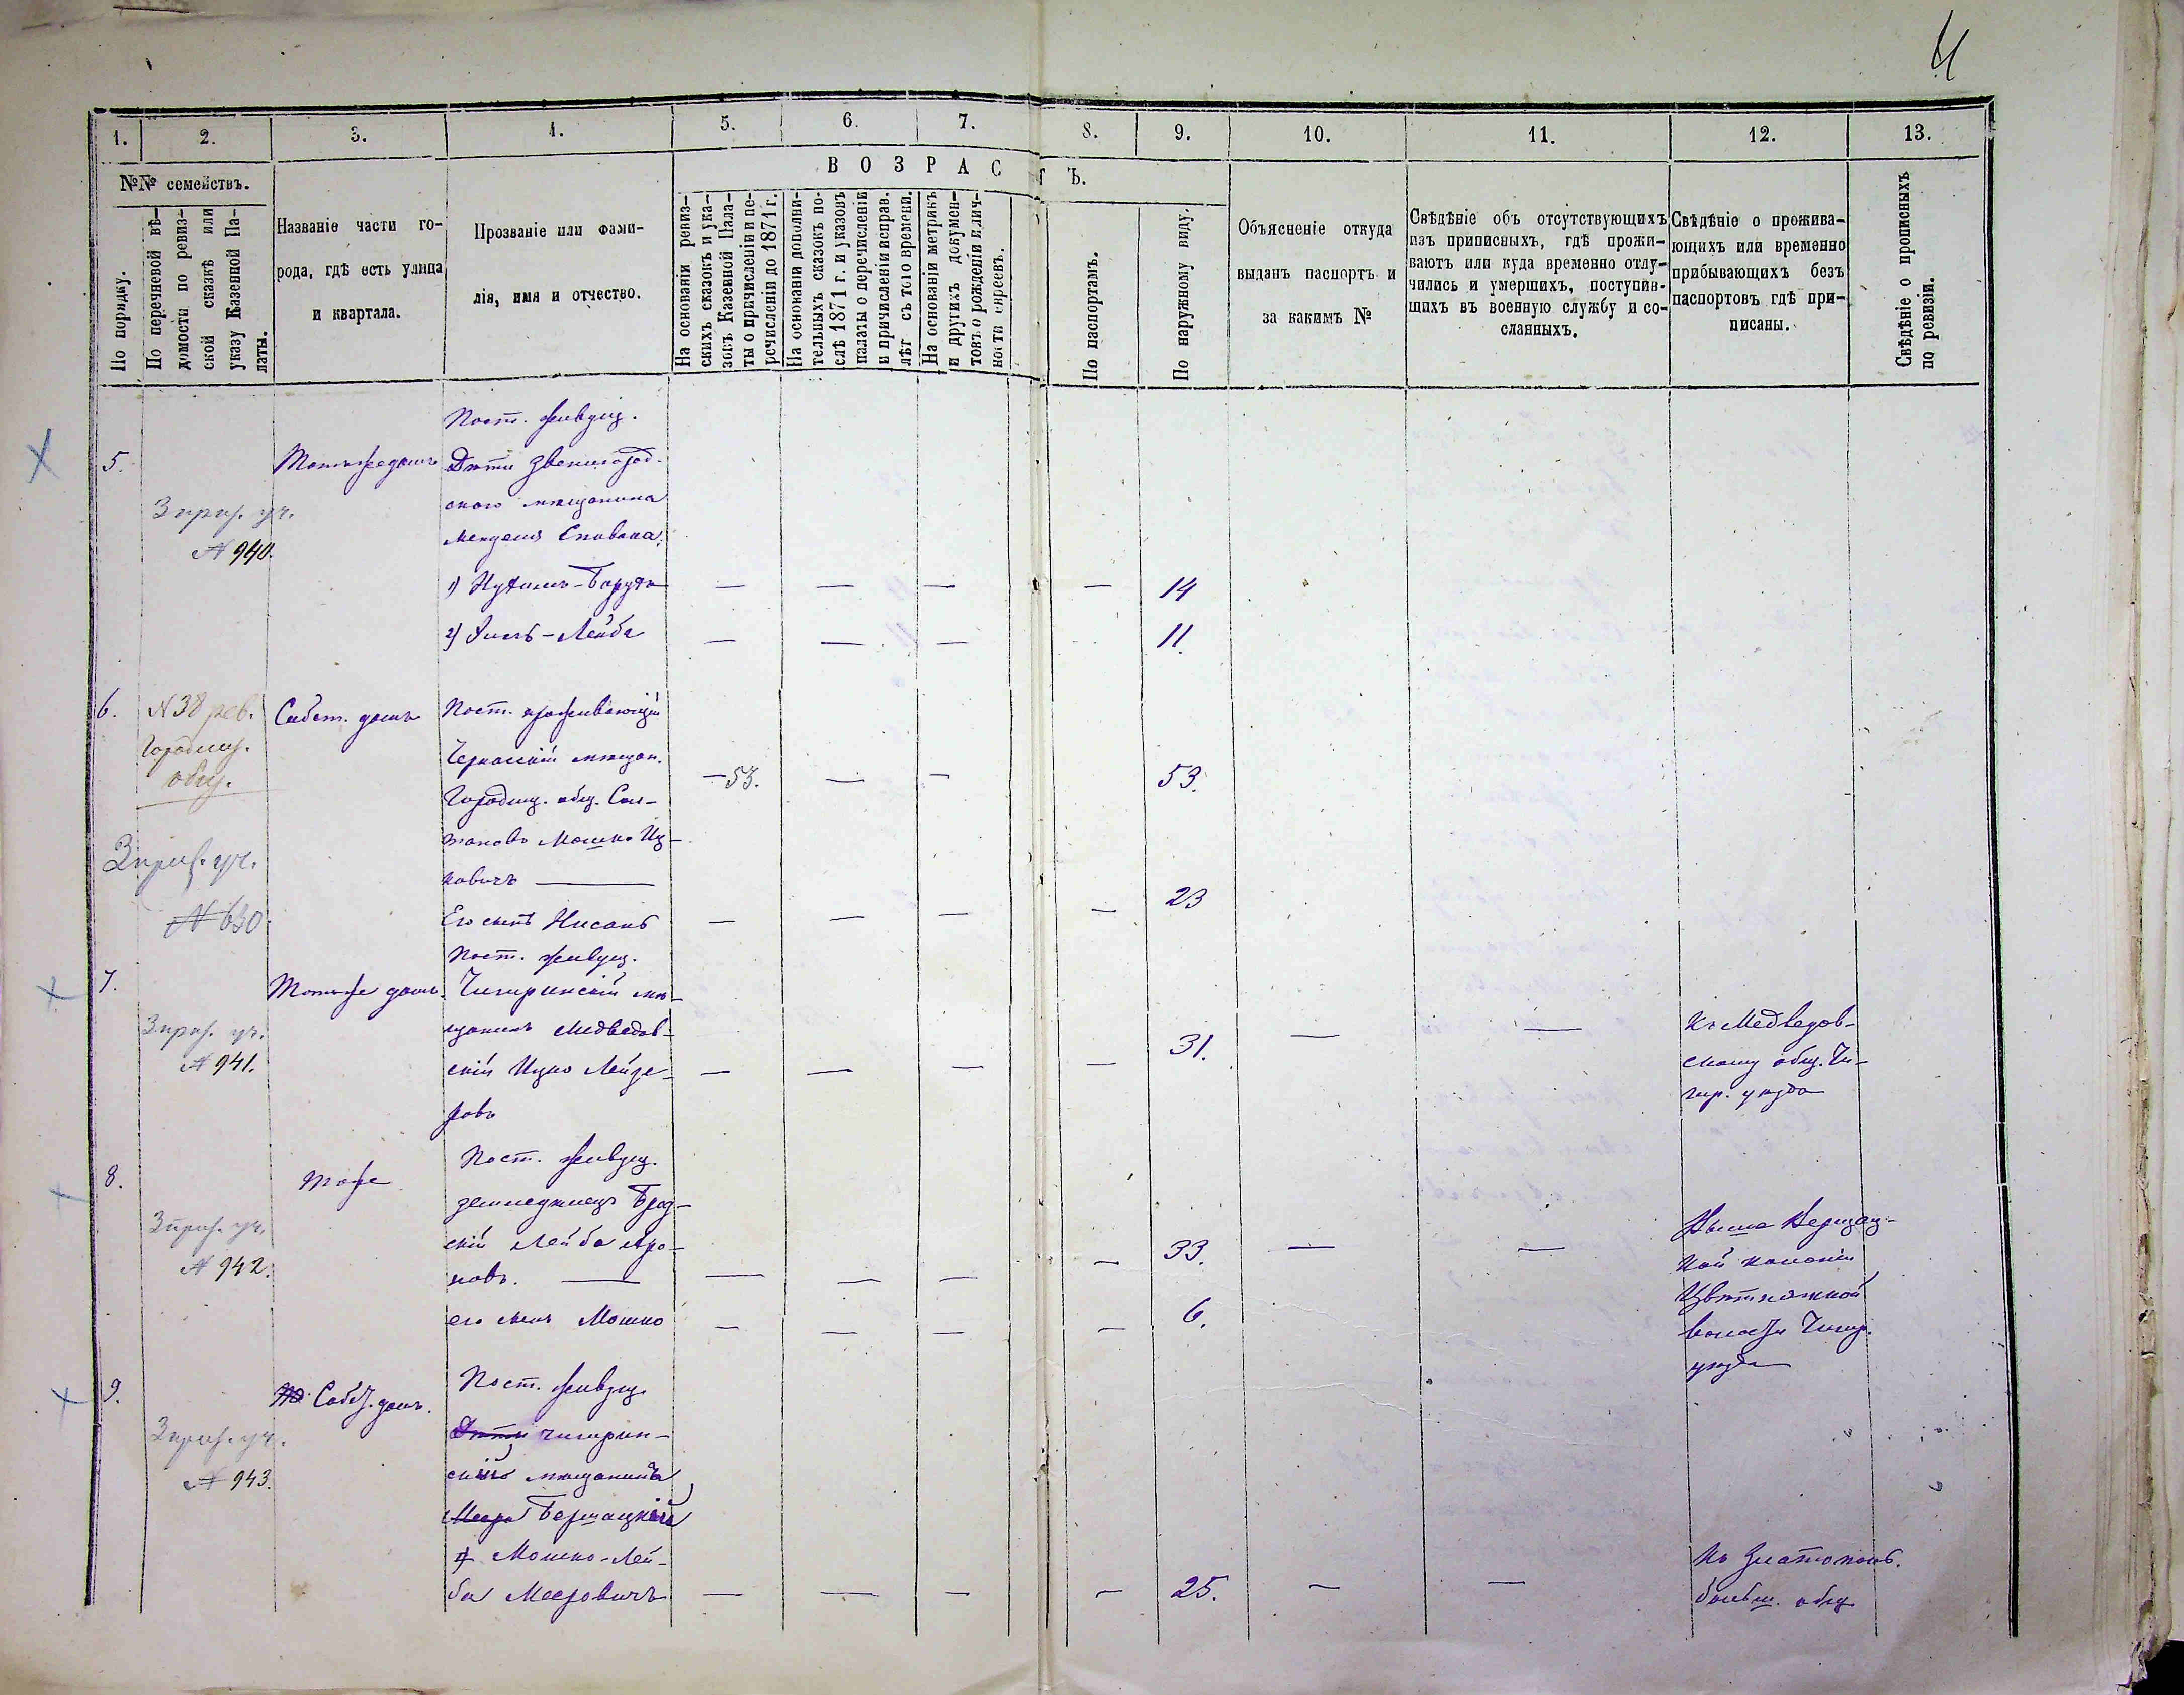 4
1. 2. 3. 4. 5. 6. 7. 8. 9. 10. 11. 12. 13.
№№ семействъ.
По порядку.
По перечневой вѣ-
домости по ревиз-
ской сказкѣ или
указу Казенной Па-
латы.
Названіе части го-
рода, гдѣ есть улица
и квартала.
Прозваніе или фами-
лія, имя и отчество.
ВОЗРАСТЪ.
На основаніи ревиз-
скихъ сказокъ и ука-
зовъ Казенной Пала-
ты о причисленіи и пе-
речисленіи до 1871 г.
На основаніи дополни-
тельныхъ сказокъ по-
слѣ 1871 г. и указовъ
палаты о перечисленіи
и причисленіи исправ.
лѣт съ того времени.
На основаніи метрикъ
и другихъ докумен-
товъ о рожденіи и лич-
ности евреевъ.
По паспортамъ.
По наружному виду.
Объясненіе откуда
выданъ паспортъ и
за какимъ №
Свѣдѣніе объ отсутствующихъ
изъ приписныхъ, гдѣ прожи-
ваютъ или куда временно отлу-
чились и умершихъ, поступив-
шихъ въ военную службу и со-
сланныхъ.
Свѣдѣніе о прожива-
ющихъ или временно
прибывающихъ безъ
паспортовъ гдѣ при-
писаны.
Свѣдѣніе о прописныхъ
по ревизіи.
Пост. живущ.
5. Дѣти Звенигород-
ского мѣщанина
Менделя Спивака:
3 приз. уч.
№ 940.
1) Нухимъ-Борухъ — — — — 14
2) Хиль-Лейба — — — 11.
6. №38 рев. Собст. домъ Пост. проживающій
Городищ.
общ.
Черкаскій мѣщан.
Городищ. общ. Сал-
тановъ Мошко Иц-
ковичъ —
—53. — — 53.
3 приз. уч.
№ 630.
Его сынъ Нисонъ — — — — 23
Пост. живущ.
7. Томъ же домъ. Чигиринскій мѣ-
щанинъ Медведов-
скій Ицко Лейзе-
ровъ
3 приз. уч.
№ 941.
— — — — 31. — —
Къ Медведов-
скому общ. Чи-
гир. уѣзда
Пост. живущ.
8. тоже
земледѣлецъ Брод-
скій Лейба Аро-
новъ. —
3 приз. уч.
№ 942.
— — — — 33. — —
его сынъ Мошко — — — — 6.
кой колоніи
Цвѣтнянской
волости Чигир.
уѣзда
9. Собст. домъ. Пост. живущ.
Дѣти чигирин-
скій мѣщанинъ
Меера Бершацкій
3 приз. уч.
№ 943.
1) Мошко-Лей-
ба Мееровичъ — — — — 25. — —
Къ Златополь.
общ.